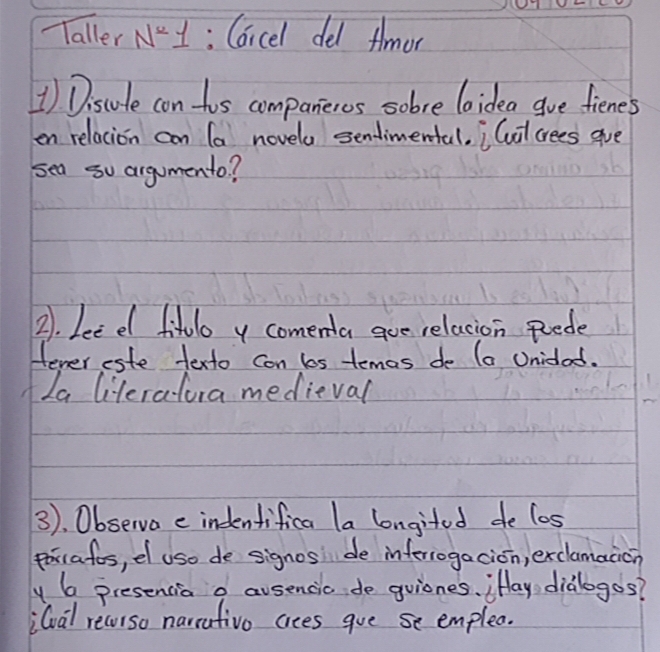 Taller Nº 1: Cárcel del Amor
1) Discute con tus compañeros sobre la idea que tienes
en relación con la novela sentimental. ¿Cuál crees que
sea su argumento?
2). Leé el título y comenta que relación puede
tener este texto con los temas de la Unidad.
La literatura medieval
3). Observa e indentifica la longitud de los
párrafos, el uso de signos de interrogación, exclamación
y la presencia o ausencia de guiones. ¿Hay diálogos?
¿Cuál recurso narrativo crees que se emplea.